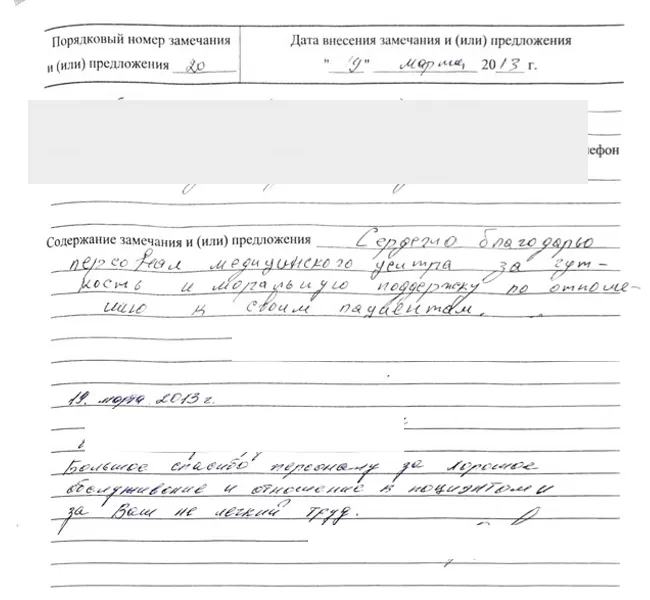 Порядковый номер замечания
и (или) предложения 20
Дата внесения замечания и (или) предложения
"19" марта 2013 г.
лефон
Содержание замечания и (или) предложения Сердечно благодарю
персонал медицинского центра за чут-
кость и моральную поддержку по отноше-
нию к своим пациентам.
19. марта 2013 г.
Большое спасибо персоналу за хорошое
обслуживание и отношение к поциентом и
за Ваш не легкий труд.